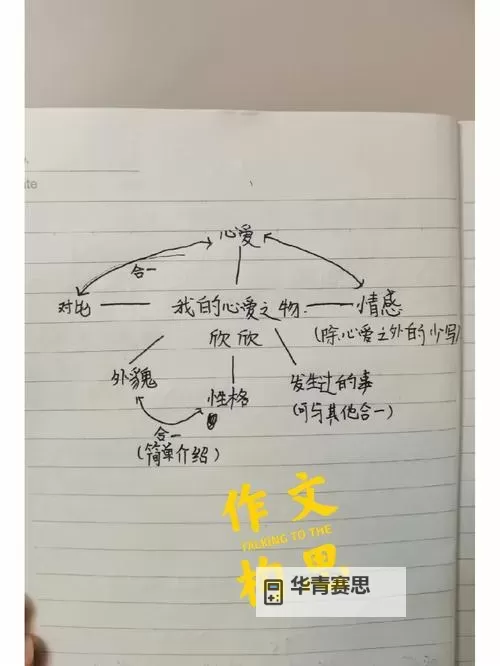 ate
心爱
合一
对比
我的心爱之物
情感
欣欣
(除心爱之外的少写)
外貌
性格
发生过的事
合一
(可与其他合一)
(简单介绍)
作文
TALKING TO THE
构思
华青赛思